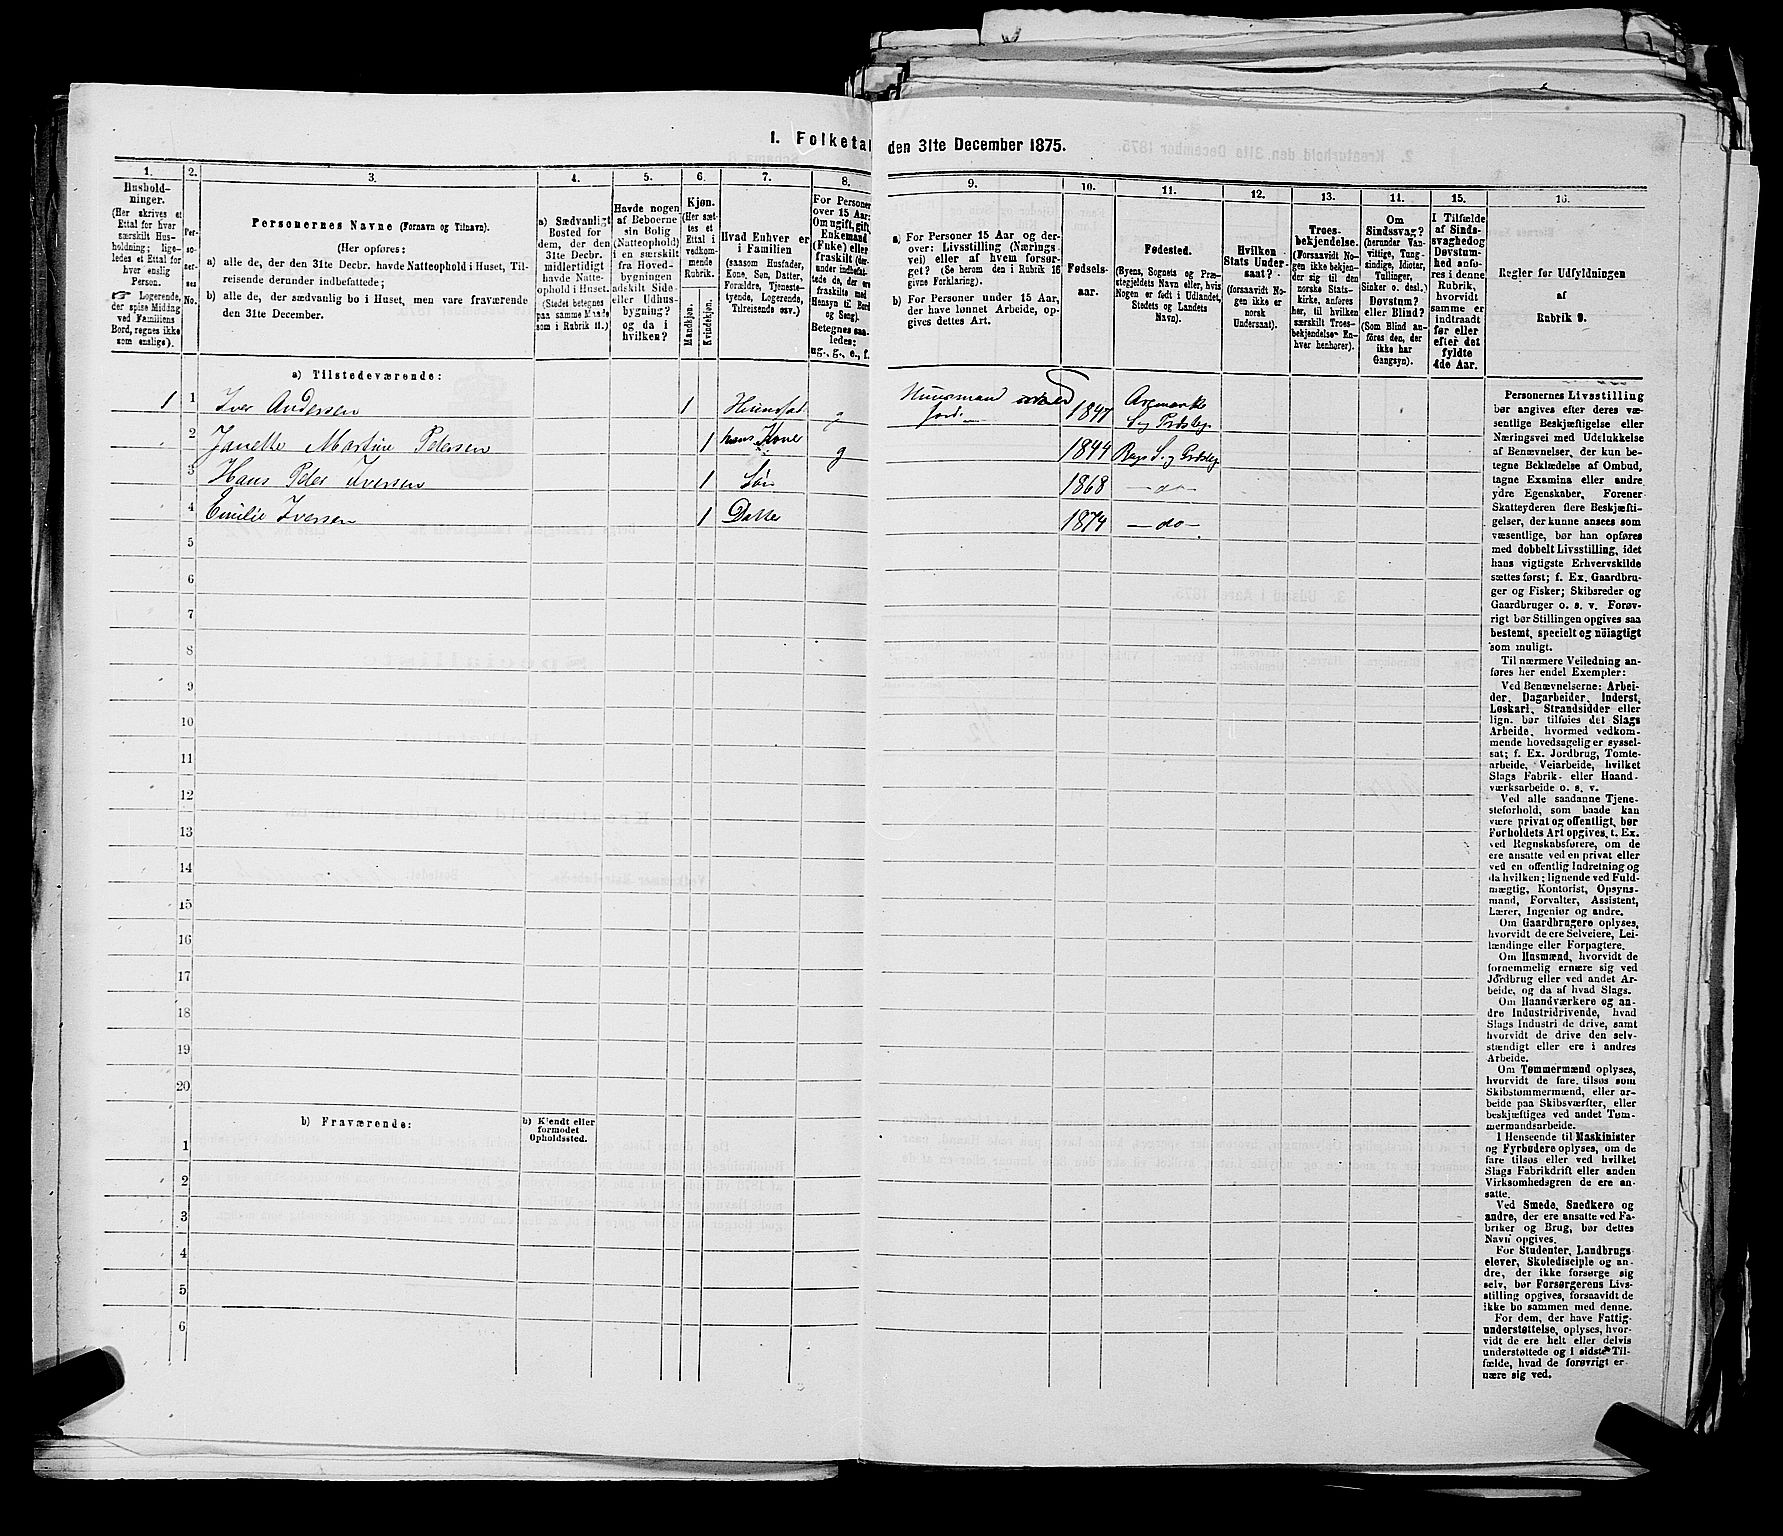 1. Folketal den 31te December 1875.
1. 2. 3. 4. 5. 6. 7. 8. 9. 10. 11. 12. 13. 14. 15. 16.
Hushold-
ninger.
(Her skrives et
Ettal for hver
særskilt Hus-
holdning; lige-
ledes et Ettal for
hver enslig
Person.
☞ Logerende,
der spise Middag
ved Familiens
Bord, regnes ikke
som enslige).
Per-
so-
ner-
nes
No.
Personernes Navne (Fornavn og Tilnavn).
(Her opføres:
a) alle de, der den 31te Decbr. havde Natteophold i Huset, Til-
reisende derunder indbefattede;
b) alle de, der sædvanlig bo i Huset, men vare fraværende
den 31te December.
a) Sædvanligt
Bosted for
dem, der den
31te Decbr.
midlertidigt
havde Natte-
ophold i Huset.
(Stedet betegnes
paa samme Maade
som i Rubrik 11.)
Havde nogen
af Beboerne
sin Bolig
(Natteophold)
i en særskilt
fra Hoved-
bygningen
adskilt Side-
eller Udhus-
bygning?
og da i
hvilken?
Kjøn.
(Her sæt-
tes et
Ettal i
vedkom-
mende
Rubrik.
Mandkjøn.
Kvindekjøn.
Hvad Enhver er
i Familien
(saasom Husfader,
Kone, Søn, Datter,
Forældre, Tjeneste-
tyende, Logerende,
Tilreisende osv.)
For Personer
over 15 Aar:
Om ugift, gift,
Enkemand
(Enke) eller
fraskilt (der-
under indbefat-
tede de, der ere
fraskilte med
Hensyn til Bord
og Seng).
Betegnes saa-
ledes:
ug., g., e., f.
a) For Personer 15 Aar og der-
over: Livsstilling (Nærings-
vei) eller af hvem forsør-
get? (Se herom den i Rubrik 16
givne Forklaring).
b) For Personer under 15 Aar,
der have lønnet Arbeide, op-
gives dettes Art.
Fødsels-
aar.
Fødested.
(Byens, Sognets og Præ-
stegjeldets Navn eller, hvis
Nogen er født i Udlandet,
Stedets og Landets
Navn).
Hvilken
Stats Under-
saat?
(forsaavidt No-
gen ikke er
norsk
Undersaat).
Troes-
bekjendelse.
(Forsaavidt No-
gen ikke bekjen-
der sig til den
norske Stats-
kirke, anføres
her, til hvilken
særskilt Troes-
bekjendelse En-
hver henhører).
Om
Sindssvag?
(herunder Van-
vittige, Tung-
sindige, Idioter,
Tullinger,
Sinker o. desl.)
Døvstum?
eller Blind?
(Som Blind an-
føres den, der
ikke har
Gangsyn).
I Tilfælde
af Sinds-
svaghed og
Døvstum-
hed anfø-
res i denne
Rubrik,
hvorvidt
samme er
indtraadt
før eller
efter det
fyldte
4de Aar.
Regler for Udfyldningen
af
Rubrik 9.
a) Tilstedeværende:
1 1 Iver Andersen 1 g Huusmand jord 1847 Aremarks S. og Prdstegj.
2 Janette Martine Pedersen 1 hans Kone g 1844 S. og Prdstegj.
3 Hans Peder Iversen 1 Søn 1868 - do -
4 Emilie Iversen 1 Datter 1874 - do -
5
6
7
8
9
10
11
12
13
14
15
16
17
18
19
20
b) Fraværende:
b) Kjendt eller
formodet
Opholdssted.
1
2
3
4
5
6
Personernes Livsstilling
bør angives efter deres væ-
sentlige Beskjæftigelse eller
Næringsvei med Udelukkelse
af Benævnelser, der kun be-
tegne Beklædelse af Ombud,
tagne Examina eller andre
ydre Egenskaber. Forener
Skatteyderen flere Beskjæfti-
gelser, der kunne ansees som
væsentlige, bør han opføres
med dobbelt Livsstilling, idet
hans vigtigste Erhvervskilde
sættes først; f. Ex. Gaardbru-
ger og Fisker; Skibsreder og
Gaardbruger o. s. v. Forøv-
rigt bør Stillingen opgives saa
bestemt, specielt og nöiagtigt
som muligt.
Til nærmere Veiledning an-
føres her endel Exempler:
Ved Benævnelserne: Arbei-
der, Dagarbeider, Inderst,
Løskarl, Strandsidder eller
lign. bør tilføies det Slags
Arbeide, hvormed vedkom-
mende hovedsagelig er syssel-
sat; f. Ex. Jordbrug, Tomte-
arbeide, Veiarbeide, hvilket
Slags Fabrik- eller Haand-
værksarbeide o. s. v.
Ved alle saadanne Tjene-
steforhold, som baade kan
være privat og offentligt, bør
Forholdets Art opgives, t. Ex.
ved Regnskabsførere, om de
ere ansatte ved en privat eller
ved en offentlig Indretning og
da hvilken; lignende ved Fuld-
mægtig, Kontorist, Opsyns-
mand, Forvalter, Assistent,
Lærer, Ingeniør og andre.
Om Gaardbrugere oplyses,
hvorvidt de ere Selveiere, Lei-
lændinge eller Forpagtere.
Om Husmænd, hvorvidt de
fornemmelig ernære sig ved
Jordbrug eller ved andet Ar-
beide, og da af hvad Slags.
Om Haandværkere og an-
dre Industridrivende, hvad
Slags Industri de drive, samt
hvorvidt de drive den selv-
stændigt eller ere i andres
Arbeide.
Om Tømmermænd oplyses,
hvorvidt de fare tilsøs som
Skibstømmermænd, eller ar-
beide paa Skibsværfter, eller
beskjæftiges ved andet Tøm-
mermandsarbeide.
I Henseende til Maskinister
og Fyrbødere oplyses, om de
fare tilsøs eller ved hvilket
Slags Fabrikdrift eller anden
Virksomhedsgren de ere an-
satte.
Ved Smede, Snedkere og
andre, der ere ansatte ved Fa-
briker og Brug, bør dettes
Navn opgives.
For Studenter, Landbrugs
elever, Skoledisciple og an-
dre, der ikke forsørge sig
selv, bør Forsørgerens Livs-
stilling opgives, forsaavidt de
ikke bo sammen med denne.
For dem, der have Fattig-
understøttelse, oplyses, hvor-
vidt de ere helt eller delvis
understøttede og i sidste Til-
fælde, hvad de forøvrigt er-
nære sig ved.